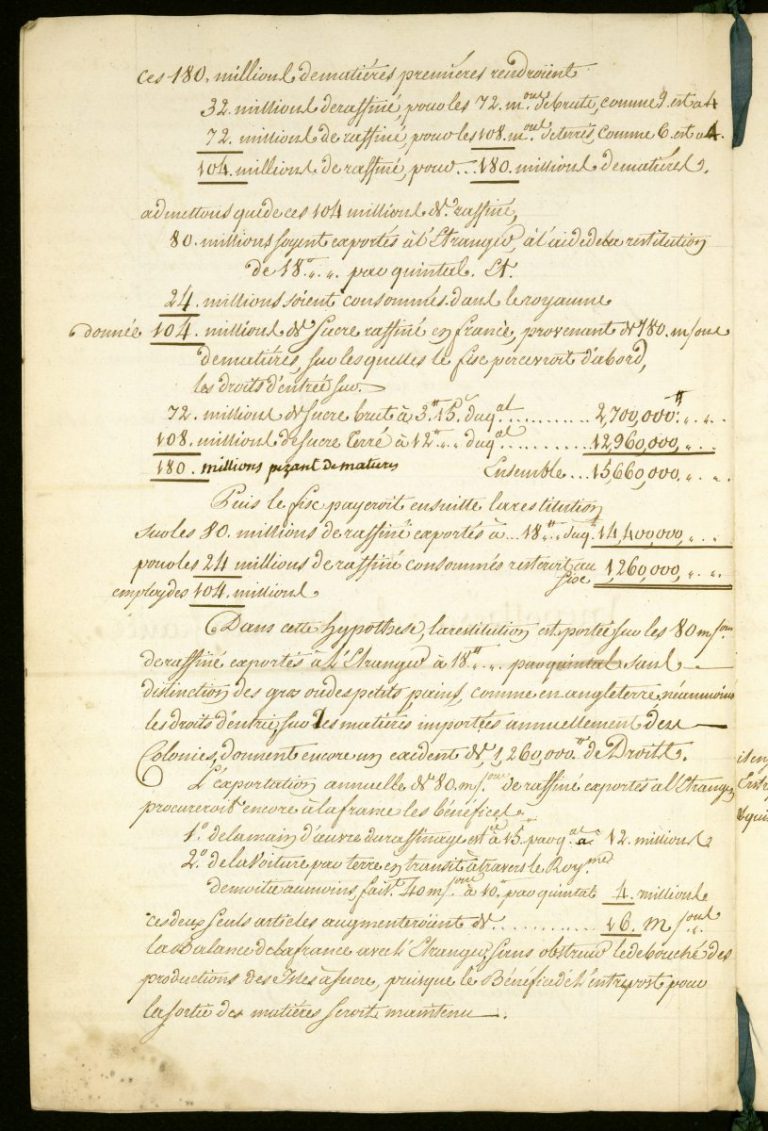 Ces 180. millions de matiéres premiéres rendroient
32. millions de raffiné, pour les 72. m.ons de brute, comme 9. est à 4
72. millions de raffiné, pour les 108. m.ons de terrés, comme 6. est à 4.
104. millions de raffiné, pour.. 180. millions de matiéres.
admettons que de ces 104 millions de raffiné,
80. millions soyent exportés à l'Etranger, à l'aide de la restitution
de 18.tt „ „ par quintal. Et.
24. millions soient consommés dans le royaume
donnée 104. millions de Sucre raffiné en france, provenant de 180. m/ons
de matiéres, sur lesquelles le fisc percevroit d'abord,
les droits d'entrée sur.
72. millions de Sucre brut à 3.tt 15.s du q.al .......... 2,700,000.tt „ . „
108. millions de Sucre terré à 12.tt „ „ du q.al ....... 12,960,000, „ . „
180. millions pezant de matieres Ensemble ... 15,660,000. „ . „
Puis le fisc payeroit ensuitte la restitution
sur les 80. millions de raffiné exportés à .. 18.tt „ du q.al 14,400,000, „ . „
pour les 24 millions de raffiné consommés resteroit au 1,260,000, „ . „
fisc
employ des 104. millions.
Dans cette hypothese, la restitution est portée sur les 80 m/ons
de raffiné exportés à l'Etranger à 18.tt „ „ par quintal sans
distinction des gros ou des petits pains, comme en angleterre, néanmoins
les droits d'entrée, sur les matiéres importées annuellement des
Colonies, donnent encore un exédent de, 1,260,000.tt de Droits.
L'exportation annuelle de 80. m/ons de raffiné exportés à l'Etranger
procureroit encore à la france les bénéfices.
1.o de la main d'œuvre du raffinage est à 15.tt par q.al 12. millions
2.o de la Voiture par terre en transit à travers le Roy.me
de moitié au moins, fait 40 m/ons à 10.tt par quintal 4. millions
ces deux seuls articles augmenteroient de .......... 16. m/ons
la Balance de la france avec l'Etranger, sans obstruer le debouché des
productions des Isles à Sucre, puisque le Bénéfice de l'entrepost pour
la sortie des matiéres seroit maintenu.